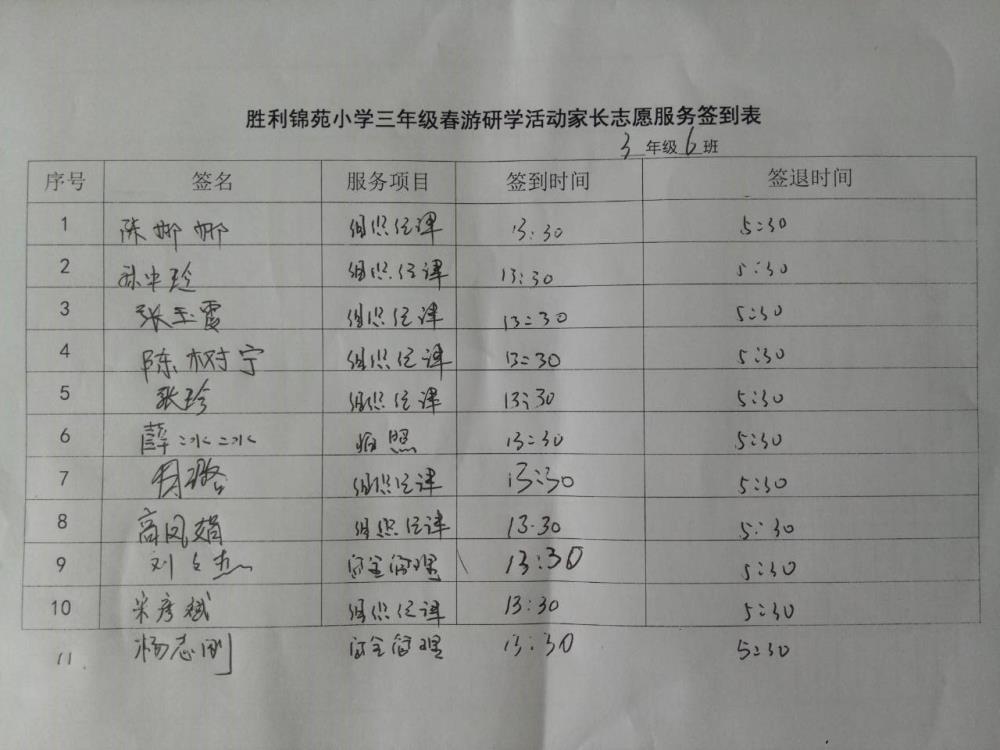 胜利锦苑小学三年级春游研学活动家长志愿服务签到表
3年级6班
序号 签名 服务项目 签到时间 签退时间
1 陈娜娜 组织纪律 13:30 5:30
2 孙中玲 组织纪律 13:30 5:30
3 张玉霞 组织纪律 13:30 5:30
4 陈树宁 组织纪律 13:30 5:30
5 张玲 组织纪律 13:30 5:30
6 薛冰冰 拍照 13:30 5:30
7 周璐 组织纪律 13:30 5:30
8 高凤娟 组织纪律 13.30 5:30
9 刘杰 安全管理 13:30 5:30
10 宋彦斌 组织纪律 13:30 5:30
11 杨志刚 安全管理 13:30 5:30